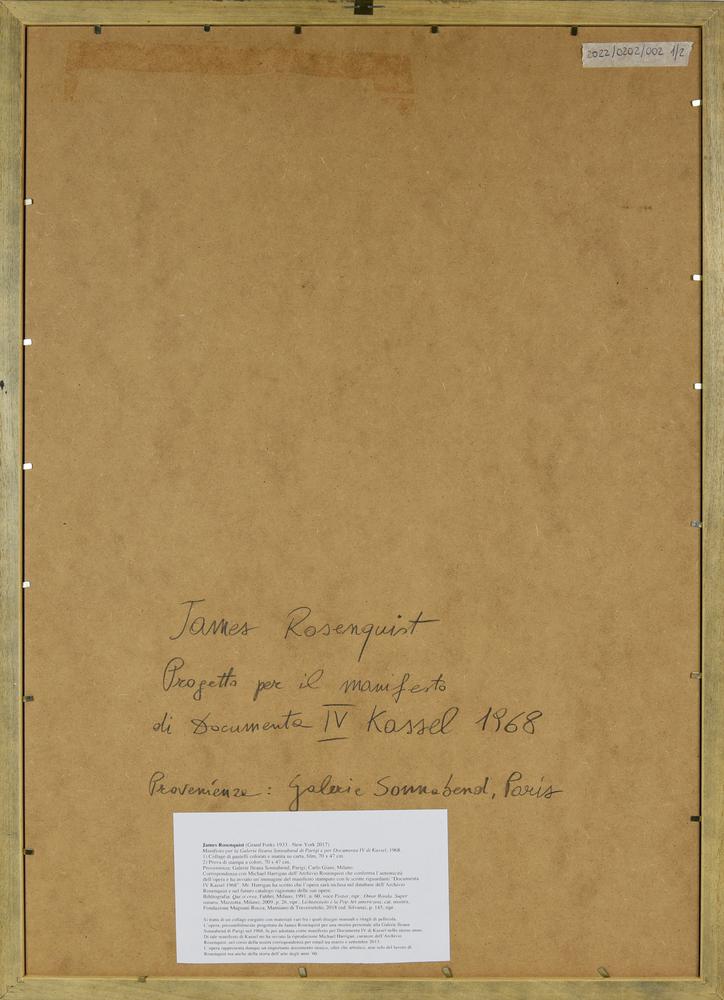 2022/0202/002 1/2
James Rosenquist
Progetto per il manifesto
di Documenta IV Kassel 1968
Provenienza: Galerie Sonnabend, Paris
James Rosenquist (Grand Forks 1933 - New York 2017)
Manifesto per la Galerie Ileana Sonnabend di Parigi e per Documenta IV di Kassel, 1968
1) Collage di pastelli colorati e matita su carta, film, 70 x 47 cm.
2) Prova di stampa a colori, 70 x 47 cm.
Provenienza: Galerie Ileana Sonnabend, Parigi; Carlo Giani, Milano.
Corrispondenza con Michael Harrigan dell'Archivio Rosenquist che conferma l'autenticità
dell'opera e ha inviato un'immagine del manifesto stampato con le scritte riguardanti "Documenta
IV Kassel 1968". Mr. Harrigan ha scritto che l'opera sarà inclusa nel database dell'Archivio
Rosenquist e nel futuro catalogo ragionato delle sue opere.
Bibliografia: Fabbri, Milano, 1991, p. 60, voce Poster, ripr.; Omar Ronda. Super
nature, Mazzotta, Milano, 2009, p. 26, ripr.; Lichtenstein e la Pop Art americana, cat. mostra,
Fondazione Magnani Rocca, Mamiano di Traversetolo, 2018 (ed. Silvana), p. 145, ripr.
Si tratta di un collage eseguito con materiali vari fra i quali disegni manuali e ritagli di pellicola.
L'opera, presumibilmente progettata da James Rosenquist per una mostra personale alla Galerie Ileana
Sonnabend di Parigi nel 1968, fu poi adottata come manifesto per Documenta IV di Kassel nello stesso anno.
Di tale manifesto di Kassel mi ha inviato la riproduzione Michael Harrigan, curatore dell'Archivio
Rosenquist, nel corso della nostra corrispondenza per email tra marzo e settembre 2013.
L'opera rappresenta dunque un importante documento storico, oltre che artistico, non solo del lavoro di
Rosenquist ma anche della storia dell'arte degli anni '60.